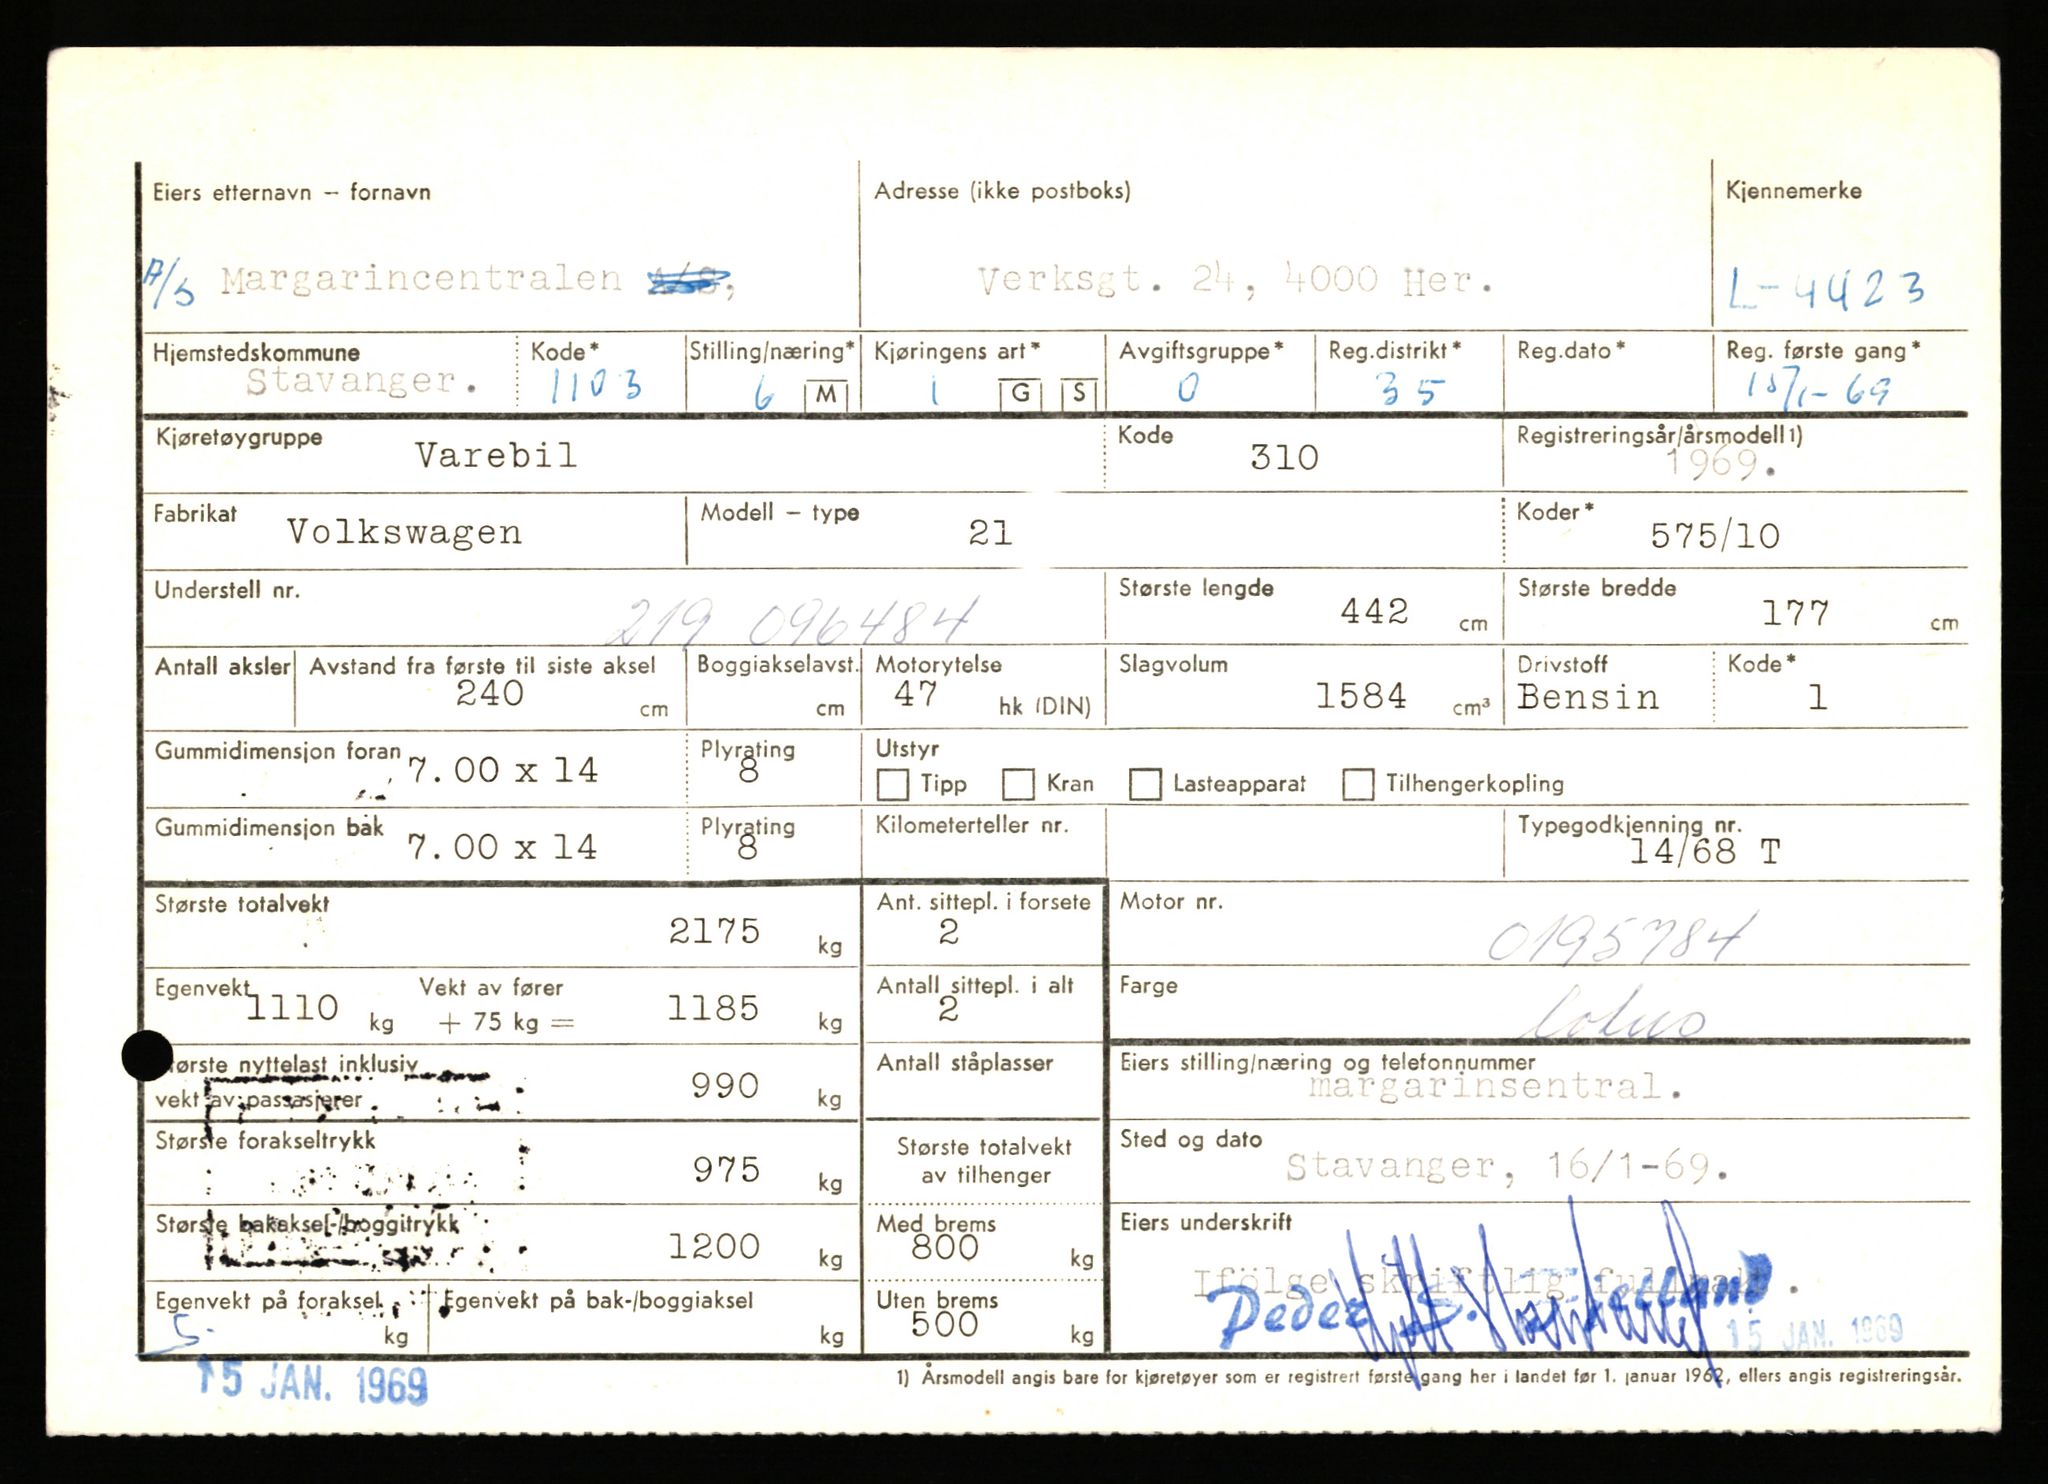 Eiers etternavn – fornavn Adresse (ikke postboks) Kjennemerke
A/S Margarincentralen A/S, Verksgt. 24, 4000 Her. L-4423
Hjemstedskommune Kode* Stilling/næring* Kjøringens art* Avgiftsgruppe* Reg.distrikt* Reg.dato* Reg. første gang*
Stavanger. 1103 6 M 1 G S 0 35 15/1-69
Kjøretøygruppe Varebil Kode 310 Registreringsår/årsmodell1)
1969.
Fabrikat Volkswagen Modell – type 21 Koder* 575/10
Understell nr. 219 096484 Største lengde 442 cm Største bredde 177 cm
Antall aksler Avstand fra første til siste aksel Boggiakselavst. Motorytelse Slagvolum Drivstoff Kode*
240 cm cm 47 hk (DIN) 1584 cm³ Bensin 1
Gummidimensjon foran 7.00 x 14 Plyrating 8 Utstyr
Tipp Kran Lasteapparat Tilhengerkopling
Gummidimensjon bak 7.00 x 14 Plyrating 8 Kilometerteller nr. Typegodkjenning nr.
14/68 T
Største totalvekt 2175 kg Ant. sittepl. i forsete 2 Motor nr. 0195784
Egenvekt 1110 kg Vekt av fører + 75 kg = 1185 kg Antall sittepl. i alt 2 Farge
Største nyttelast inklusiv
vekt av passasjerer 990 kg Antall ståplasser Eiers stilling/næring og telefonnummer
margarinsentral.
Største forakseltrykk 975 kg Største totalvekt
av tilhenger Sted og dato
Stavanger, 16/1-69.
Største bakaksel-/boggitrykk 1200 kg Med brems 800 kg Eiers underskrift
Ifölge skriftlig fullmakt.
Peder S.
Egenvekt på foraksel kg Egenvekt på bak-/boggiaksel kg Uten brems 500 kg
15 JAN. 1969
15 JAN. 1969
1) Årsmodell angis bare for kjøretøyer som er registrert første gang her i landet før 1. januar 1962, ellers angis registreringsår.